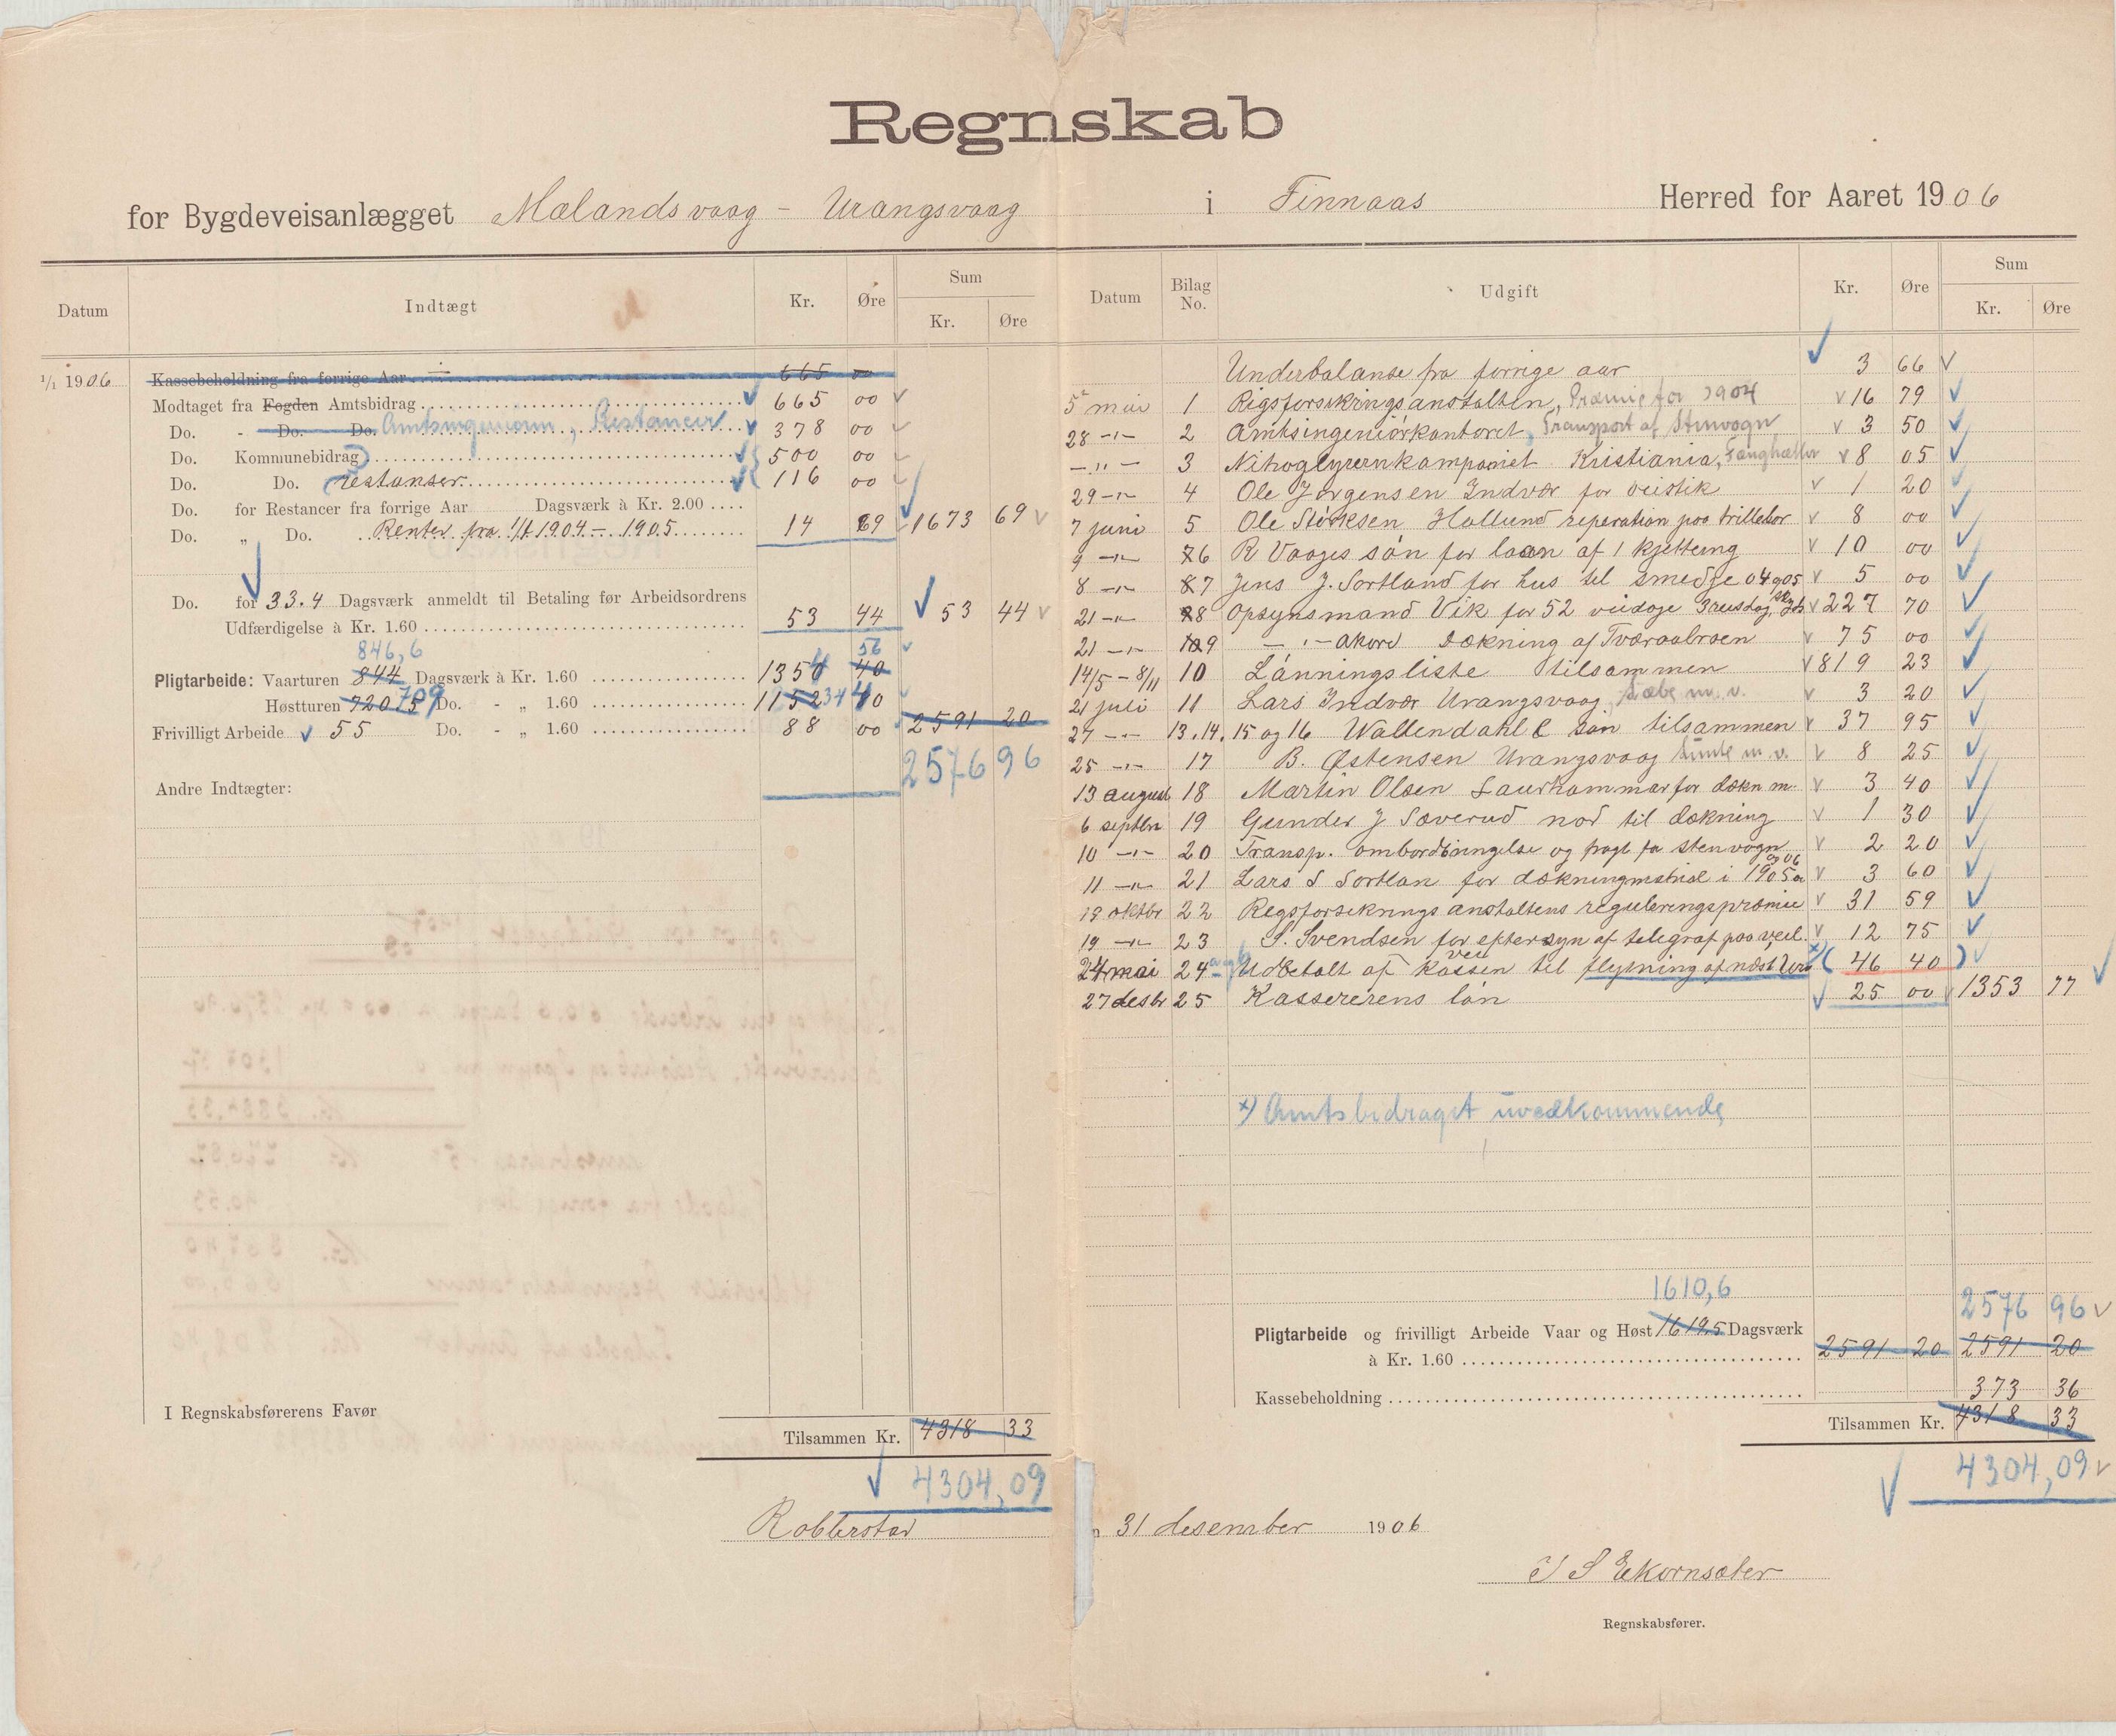 Regnskab
for Bygdeveisanlægget Mælandsvaag - Urangsvaag i Finnaas Herred for Aaret 1906
Datum Indtægt Kr. Øre Sum Kr. Øre
1/1 1906 Kassebeholdning fra forrige Aar 665 00
Modtaget fra Fogden Amtsbidrag 665 00
Do. - Do. Do. Amtsingeniøren, Restancer 378 00
Do. Kommunebidrag 500 00
Do. Do. restanser 116 00
Do. for Restancer fra forrige Aar Dagsværk à Kr. 2.00
Do. „ Do. Renter fra 1/1 1904 - 1905 14 69 1673 69
Do. for 33.4 Dagsværk anmeldt til Betaling før Arbeidsordrens
Udfærdigelse à Kr. 1.60 53 44 53 44
846,6 56
Pligtarbeide: Vaarturen 844 Dagsværk à Kr. 1.60 1354 40
Høstturen 720 709 Do. - „ 1.60 1152 34 40
Frivilligt Arbeide 55 Do. - „ 1.60 88 00 2591 20
2576 96
Andre Indtægter:
I Regnskabsførerens Favør
Tilsammen Kr. 4318 33
4304,09
Datum Bilag No. Udgift Kr. Øre Sum Kr. Øre
Underbalanse fra forrige aar 3 66
5 mai 1 Rigsforsikringsanstalten, Præmie for 1904 16 79
28 -"- 2 Amtsingeniörkontoret, Transport af Stenvogn 3 50
-"- 3 Nitroglyzernkompaniet Kristiania, Fænghætter 8 05
29 -"- 4 Ole Jørgensen Indvær for veistik 1 20
7 juni 5 Ole Størksen Hollund reperation paa trillebor 8 00
9 -"- 6 R Vaages søn for laan af 1 kjetting 10 00
8 -"- 7 Jens J. Sortland for hus til smedje 04 og 05 5 00
21 -"- 8 Opsynsmand Vik for 52 veidage 227 70
21 -"- 9 -"- akord Dækning af Tværaabroen 75 00
14/5 - 8/11 10 Lønningsliste tilsammen 819 23
21 juli 11 Lars Indvær Urangsvaag, m. v. 3 20
27 -"- 13.14.15 og 16 Wallendahl & søn tilsammen 37 95
25 -"- 17 B. Østensen Urangsvaag m. v. 8 25
13 august 18 Martin Olsen Laurhammar for dækn m. 3 40
6 septbr 19 Gunder J Sæverud nod til dækning 1 30
10 -"- 20 Transp. ombordbringelse og fragt for stenvogn 2 20
11 -"- 21 Lars S Sortlan for dækningmatrial i 1905 og 06 3 60
18 oktbr 22 Regsforsiknings anstaltens reguleringspræmie 31 59
19 -"- 23 S. Svendsen for eftersyn af telegraf paa veil. 12 75
24 mai 24 Udbetalt af veikassen til flytning af 46 40
27 desbr 25 Kassererens løn 25 00 1353 77
x) Amtsbidraget uvedkommende
1610,6 2576 96
Pligtarbeide og frivilligt Arbeide Vaar og Høst 1619.5 Dagsværk
à Kr. 1.60 2591 20 2591 20
Kassebeholdning 373 36
Tilsammen Kr. 4318 33
4304,09
31 desember 1906
S Ekornsæter
Regnskabsfører.